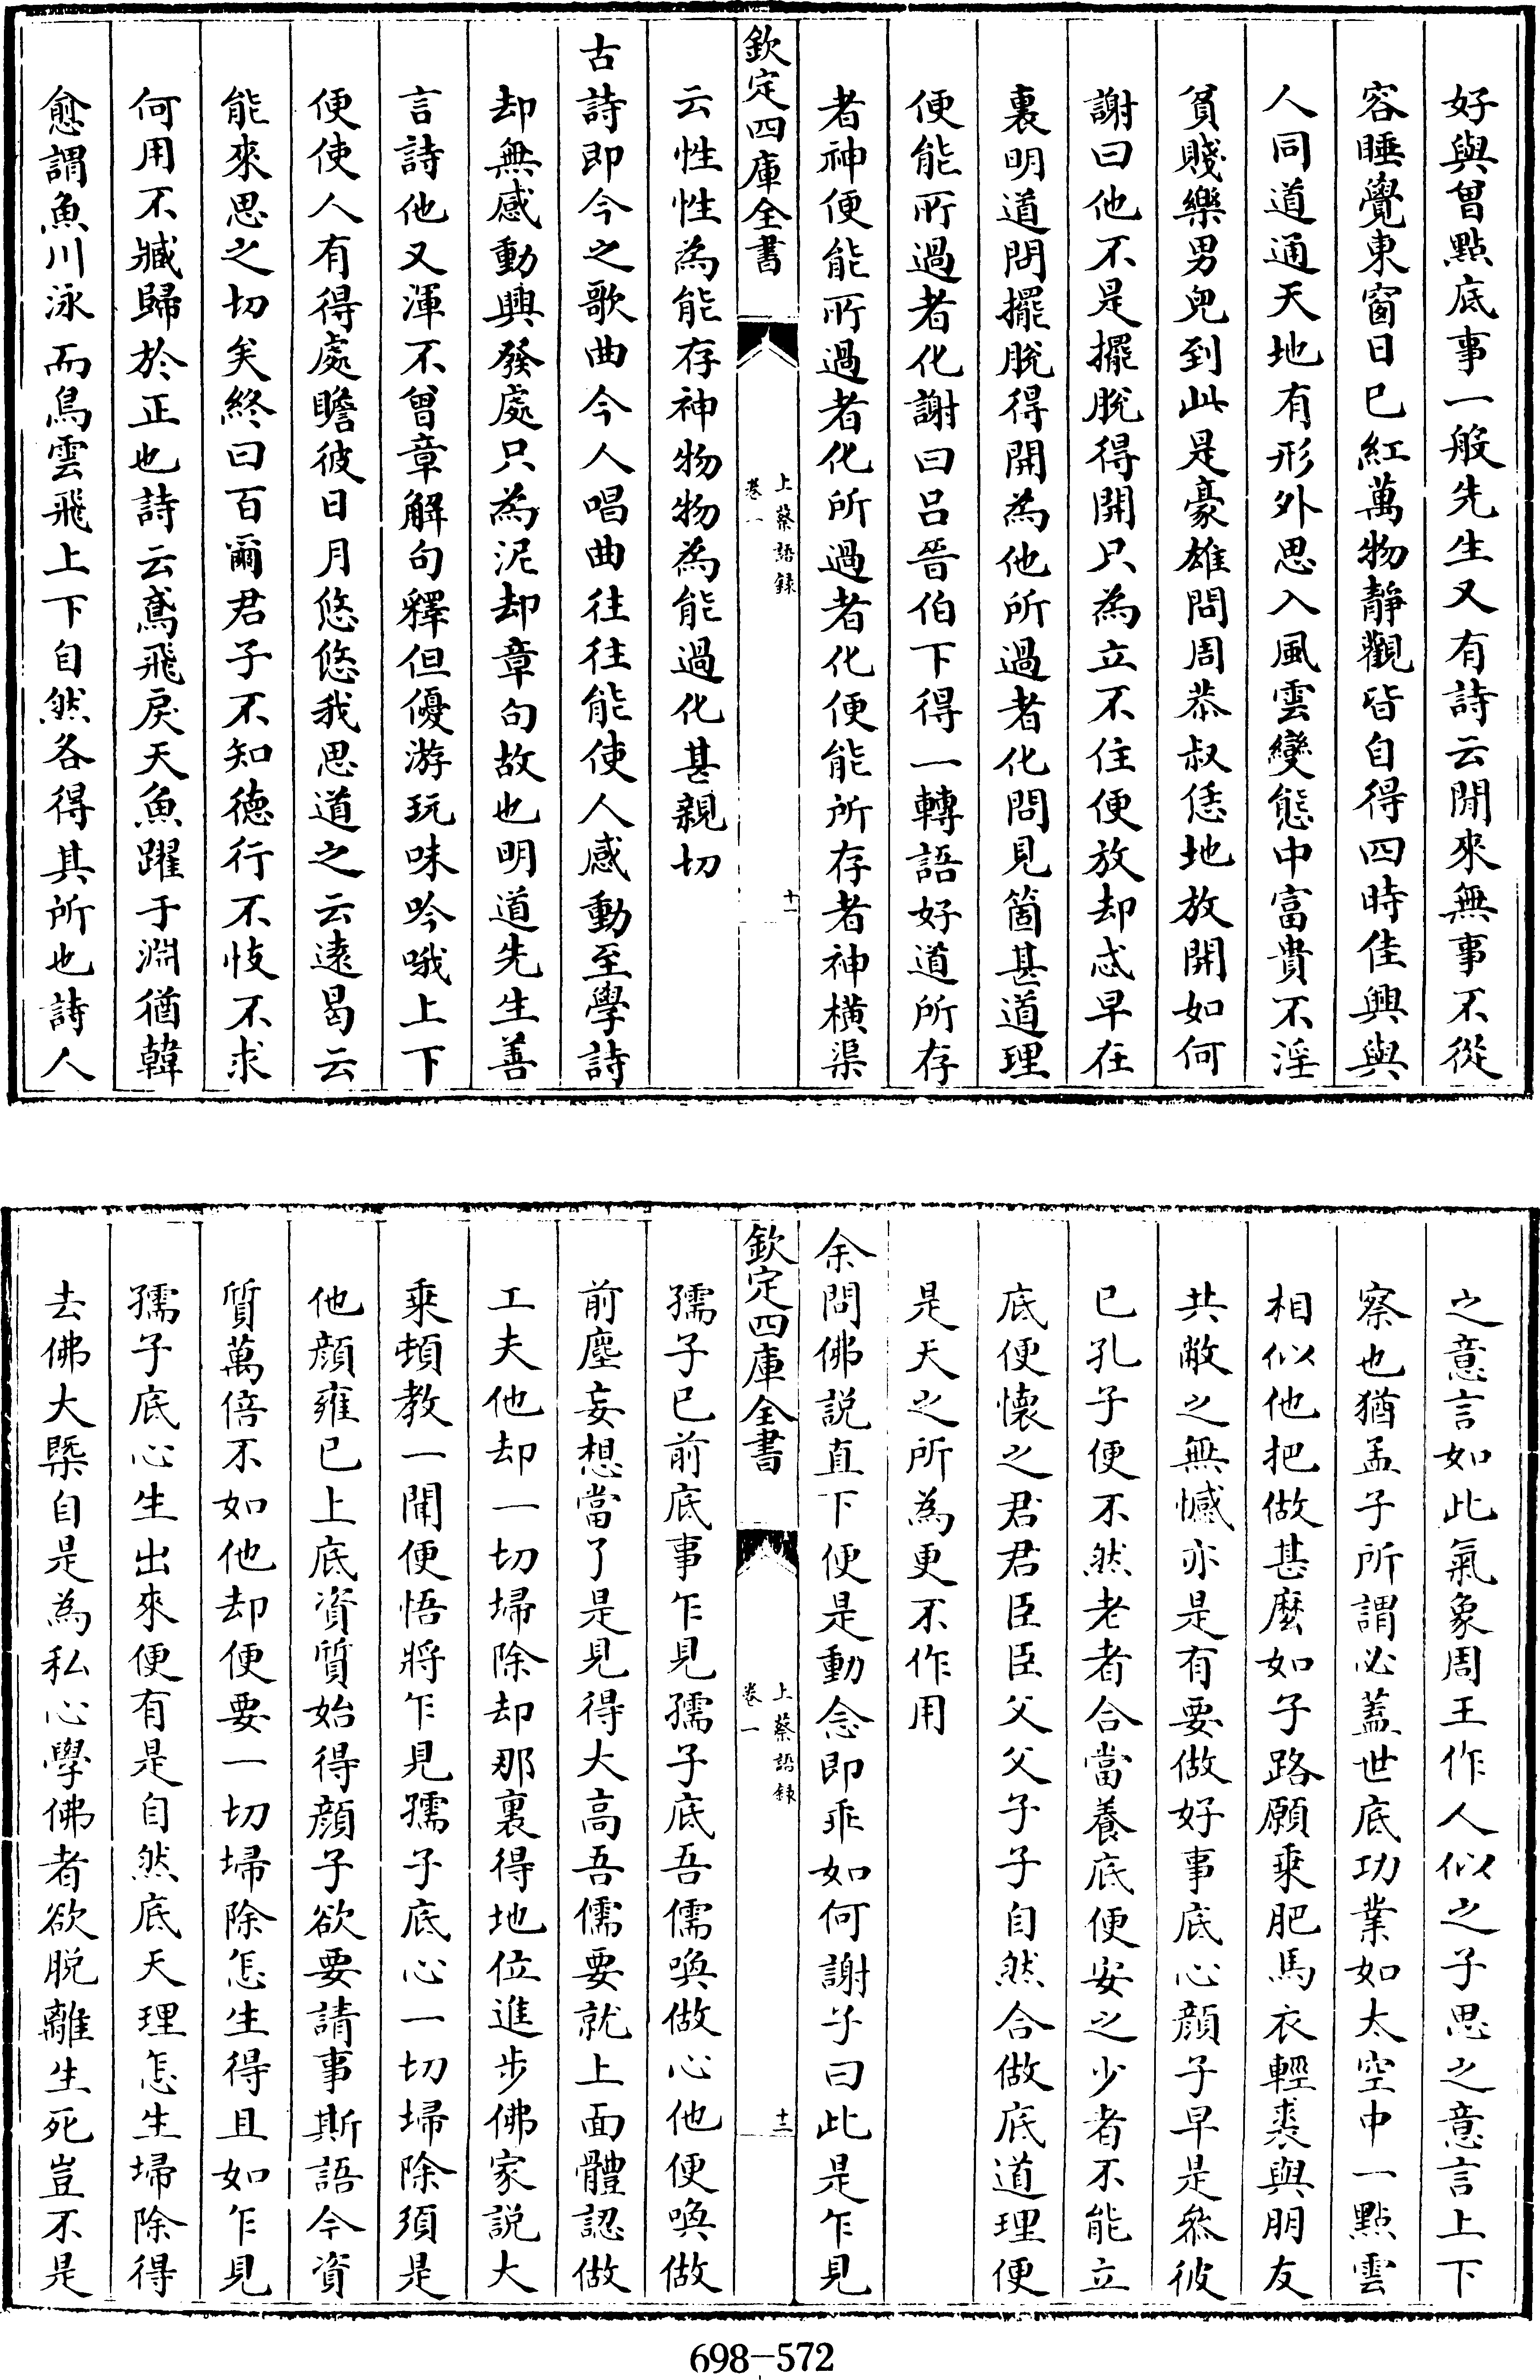 好與曾點底事一般先生又有詩云閒來無事不從
容睡覺東窗日已紅萬物靜觀皆自得四時佳興與
人同道通天地有形外思入風雲變態中富貴不淫
貧賤樂男兒到此是豪雄問周恭叔恁地放開如何
謝曰他不是擺脫得開只為立不住便放却忒早在
裏明道問擺脫得開為他所過者化問見箇甚道理
便能所過者化謝曰呂晉伯下得一轉語好道所存
者神便能所過者化所過者化便能所存者神橫渠
欽定四庫全書
上蔡語録
卷一
十一
云性性為能存神物物為能過化甚親切
古詩即今之歌曲今人唱曲往往能使人感動至學詩
却無感動興發處只為泥却章句故也明道先生善
言詩他又渾不曾章解句釋但優游玩味吟哦上下
便使人有得處瞻彼日月悠悠我思道之云遠曷云
能來思之切矣終曰百爾君子不知德行不忮不求
何用不臧歸於正也詩云鳶飛戾天魚躍于淵猶韓
愈謂魚川泳而鳥雲飛上下自然各得其所也詩人
之意言如此氣象周王作人似之子思之意言上下
察也猶孟子所謂必蓋世底功業如太空中一點雲
相似他把做甚麼如子路願乘肥馬衣輕裘與朋友
共敝之無憾亦是有要做好事底心顏子早是叅彼
已孔子便不然老者合當養底便安之少者不能立
底便懷之君君臣臣父父子子自然合做底道理便
是天之所為更不作用
余問佛説直下便是動念即乖如何謝子曰此是乍見
欽定四庫全書
上蔡語録
卷一
十二
孺子已前底事乍見孺子底吾儒喚做心他便喚做
前塵妄想當了是見得大高吾儒要就上面體認做
工夫他却一切埽除却那裏得地位進步佛家説大
乘頓教一聞便悟將乍見孺子底心一切埽除須是
他顏雍已上底資質始得顏子欲要請事斯語今資
質萬倍不如他却便要一切埽除怎生得且如乍見
孺子底心生出來便有是自然底天理怎生埽除得
去佛大槩自是為私心學佛者欲脫離生死豈不是
698-572